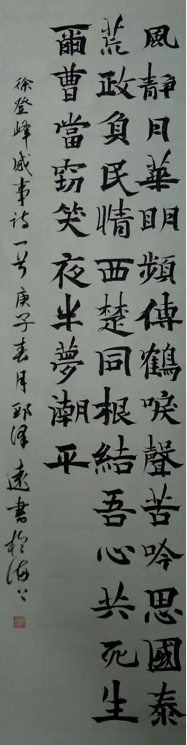 風靜月華明頻傳鶴唳聲苦吟思國泰
荒政負民情西楚同根結吾心共死生
爾曹當竊笑夜半夢潮平
徐登峰感事詩一首庚子春月邱澤遠書於海上